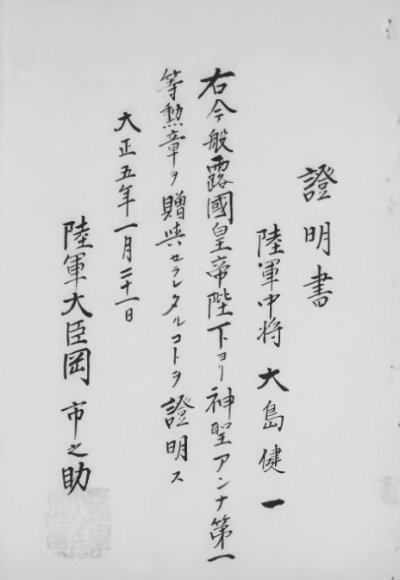 證明書
陸軍中将 大島健一
右今般露國皇帝陛下ヨリ神聖アンナ第一
等勲章ヲ贈與セラレタルコトヲ證明ス
大正五年一月二十一日
陸軍大臣岡市之助